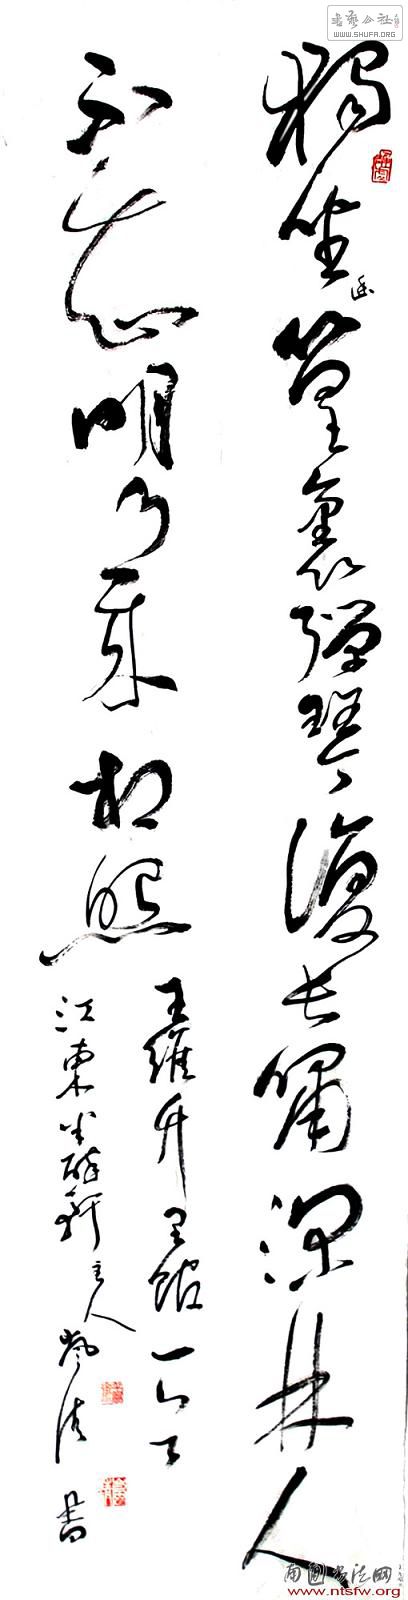 書藝公社
WWW.SHUFA.ORG
獨坐幽篁裏彈琴復長嘯深林人
不知明月來相照
王維竹里館一
江東半醉軒主人 書
书法网
www.ntsfw.org